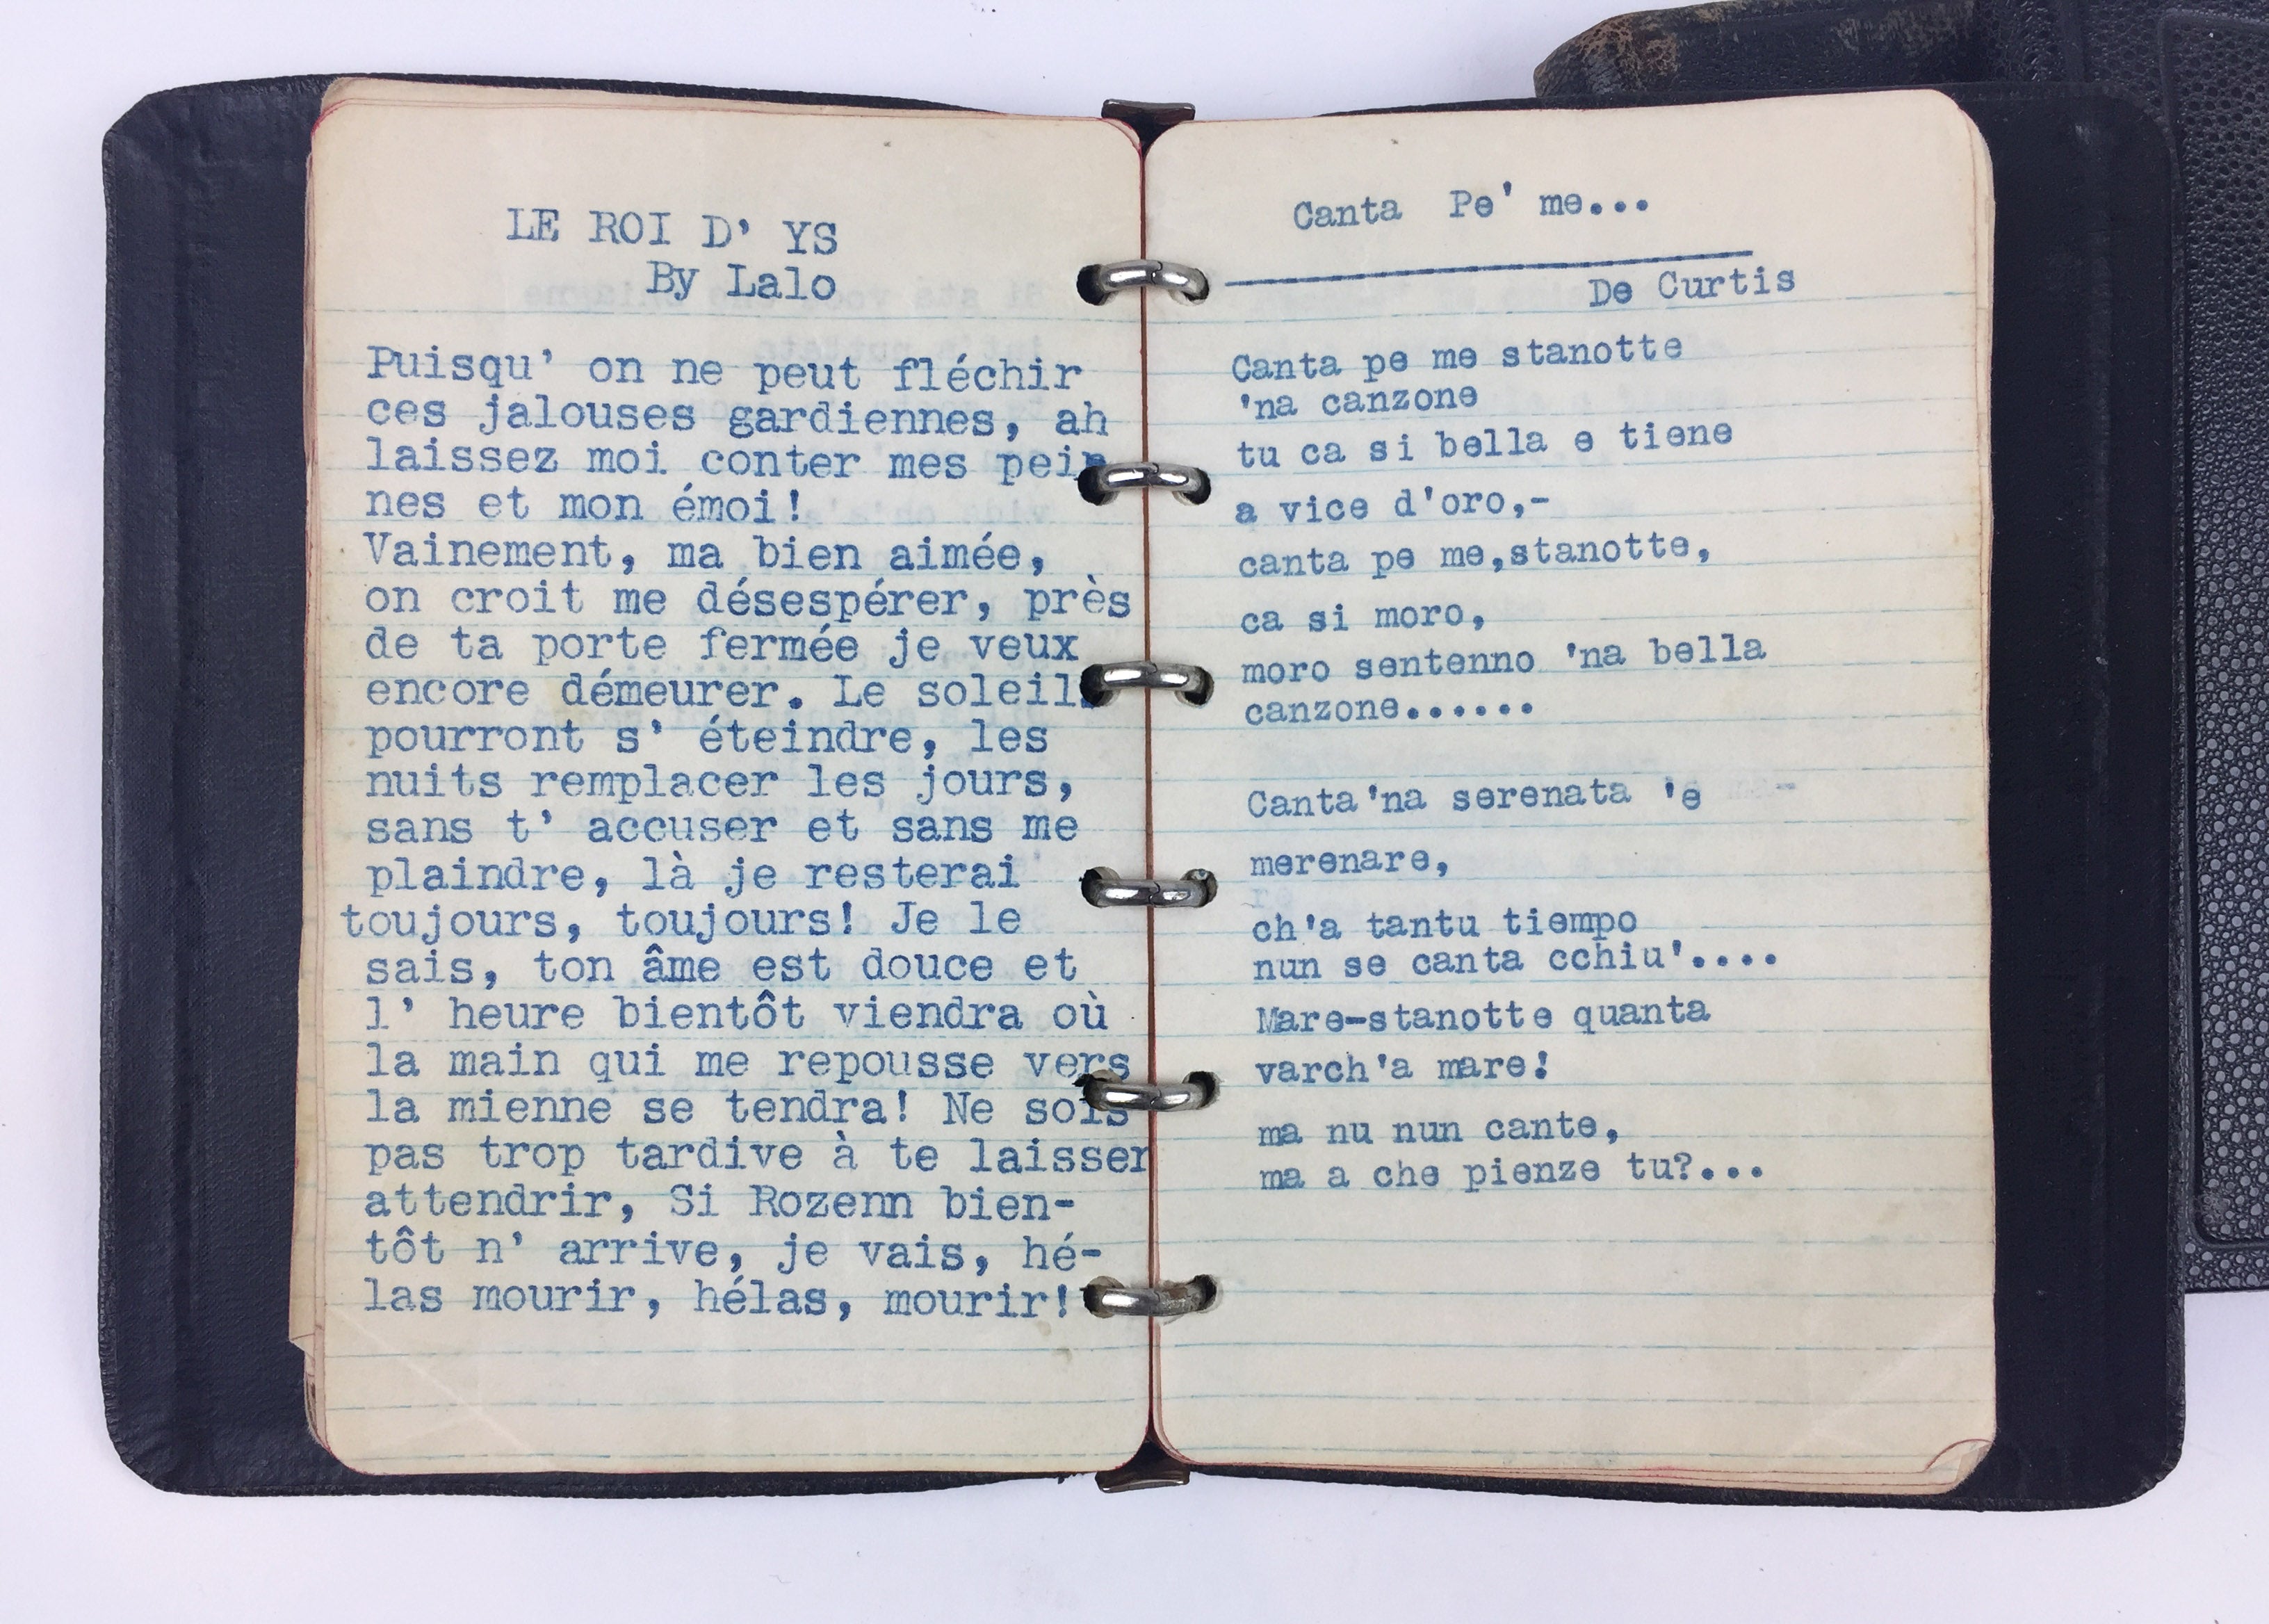 LE ROI D' YS
By Lalo
Puisqu' on ne peut fléchir
ces jalouses gardiennes, ah
laissez moi conter mes pein
nes et mon émoi!
Vainement, ma bien aimée,
on croit me désespérer, près
de ta porte fermée je veux
encore démeurer. Le soleils
pourront s' éteindre, les
nuits remplacer les jours,
sans t' accuser et sans me
plaindre, là je resterai
toujours, toujours! Je le
sais, ton âme est douce et
l' heure bientôt viendra où
la main qui me repousse vers
la mienne se tendra! Ne sois
pas trop tardive à te laisser
attendrir, Si Rozenn bien-
tôt n' arrive, je vais, hé-
las mourir, hélas, mourir!
Canta Pe' me...
De Curtis
Canta pe me stanotte
'na canzone
tu ca si bella e tiene
a vice d'oro,-
canta pe me,stanotte,
ca si moro,
moro sentenno 'na bella
canzone......
Canta'na serenata 'e
merenare,
ch'a tantu tiempo
nun se canta cchiu'....
Mare-stanotte quanta
varch'a mare!
ma nu nun cante,
ma a che pienze tu?...